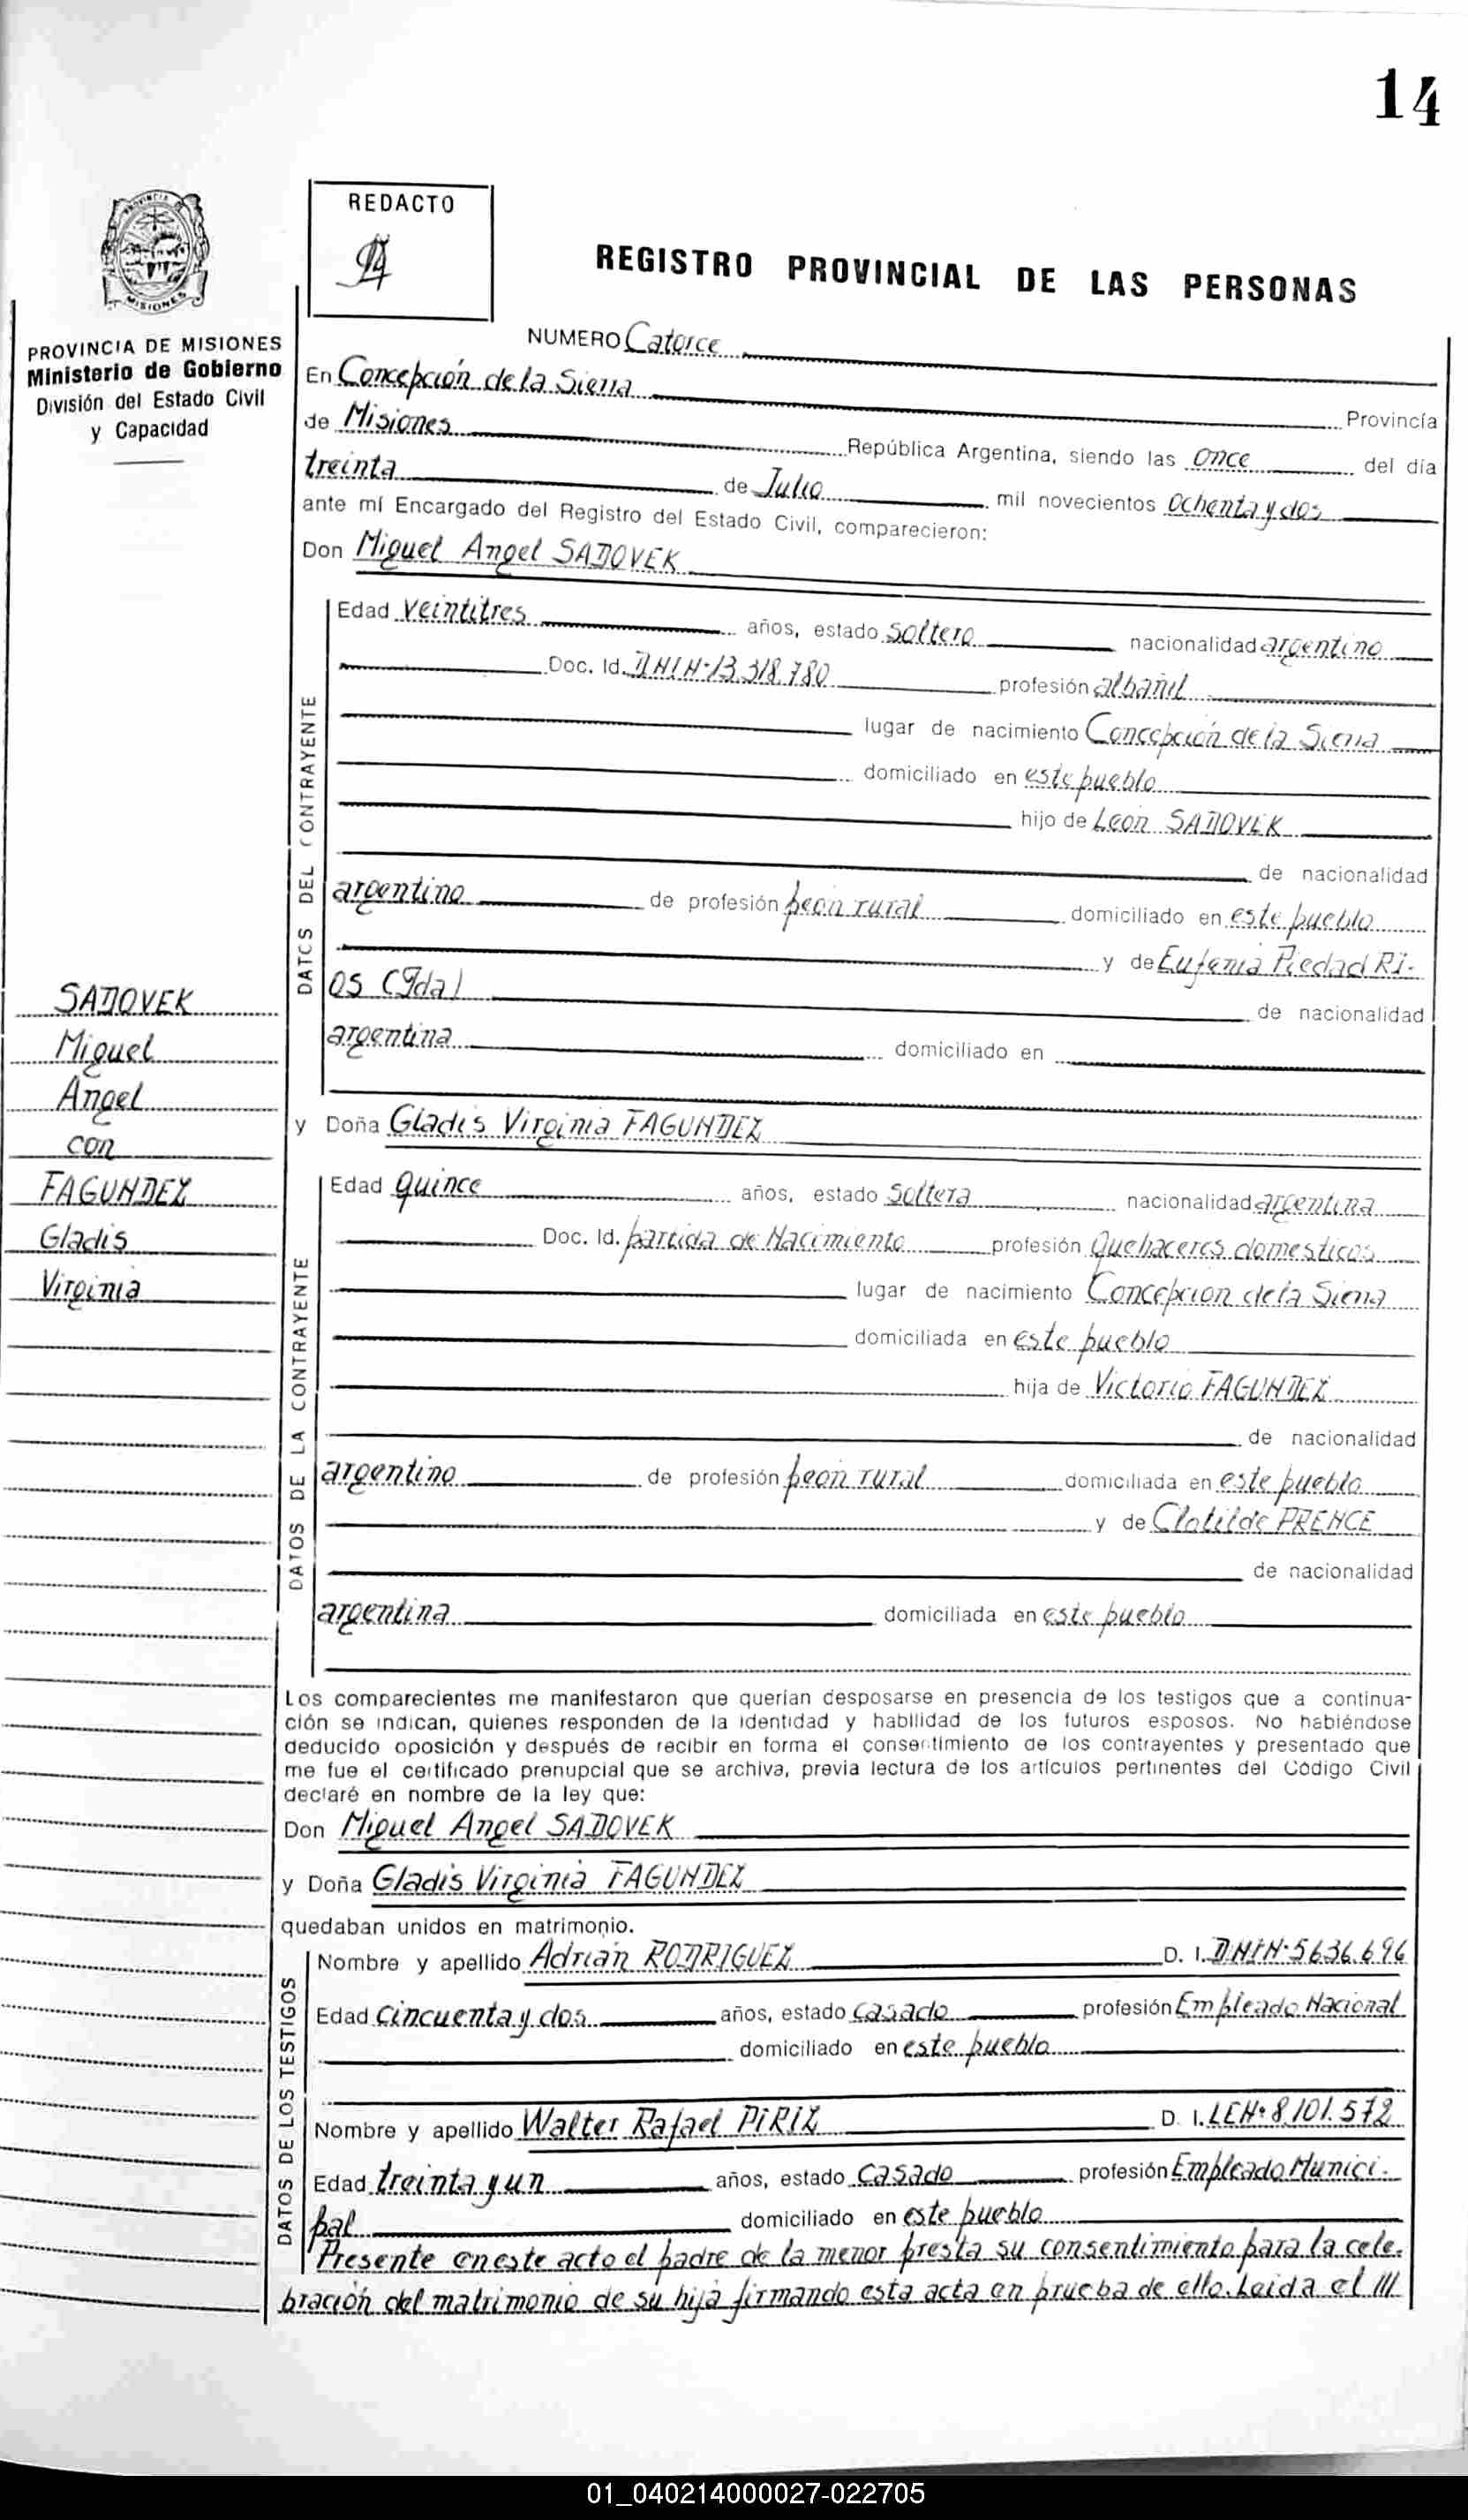 14
REDACTO
REGISTRO PROVINCIAL DE LAS PERSONAS
PROVINCIA DE MISIONES
Ministerio de Gobierno
División del Estado Civil
y Capacidad
NUMERO Catorce
En Concepción de la Sierra Provincia
de Misiones República Argentina, siendo las once del día
treinta de Julio mil novecientos ochenta y dos
ante mí Encargado del Registro del Estado Civil, comparecieron:
Don Miguel Angel SADOVEK
DATOS DEL CONTRAYENTE
Edad veintitres años, estado soltero nacionalidad argentino
Doc. Id. DNI Nº 13.318.780 profesión albañil
lugar de nacimiento Concepción de la Sierra
domiciliado en este pueblo
hijo de Leon SADOVEK
de nacionalidad
argentino de profesión peon rural domiciliado en este pueblo
y de Eufemia Piedad Ri-
os (Fda) de nacionalidad
argentina domiciliado en
SADOVEK
Miguel
Angel
con
FAGUNDEZ
Gladis
Virginia
y Doña Gladis Virginia FAGUNDEZ
DATOS DE LA CONTRAYENTE
Edad quince años, estado soltera nacionalidad argentina
Doc. Id. partida de Nacimiento profesión Quehaceres domesticos
lugar de nacimiento Concepcion de la Sierra
domiciliada en este pueblo
hija de Victorio FAGUNDEZ
de nacionalidad
argentino de profesión peon rural domiciliada en este pueblo
y de Clotilde PRENCE
de nacionalidad
argentina domiciliada en este pueblo
Los comparecientes me manifestaron que querían desposarse en presencia de los testigos que a continua-
ción se indican, quienes responden de la identidad y habilidad de los futuros esposos. No habiéndose
deducido oposición y después de recibir en forma el consentimiento de los contrayentes y presentado que
me fue el certificado prenupcial que se archiva, previa lectura de los artículos pertinentes del Código Civil
declaré en nombre de la ley que:
Don Miguel Angel SADOVEK
y Doña Gladis Virginia FAGUNDEZ
quedaban unidos en matrimonio.
DATOS DE LOS TESTIGOS
Nombre y apellido Adrián RODRIGUEZ D. I. DNI Nº 5.636.696
Edad cincuenta y dos años, estado casado profesión Empleado Nacional
domiciliado en este pueblo
Nombre y apellido Walter Rafael PIRIZ D. I. LE Nº 8.101.572
Edad treinta y un años, estado casado profesión Empleado Munici-
pal domiciliado en este pueblo
Presente en este acto el padre de la menor presta su consentimiento para la cele-
bración del matrimonio de su hija firmando esta acta en prueba de ello. Leida el ///
01_040214000027-022705